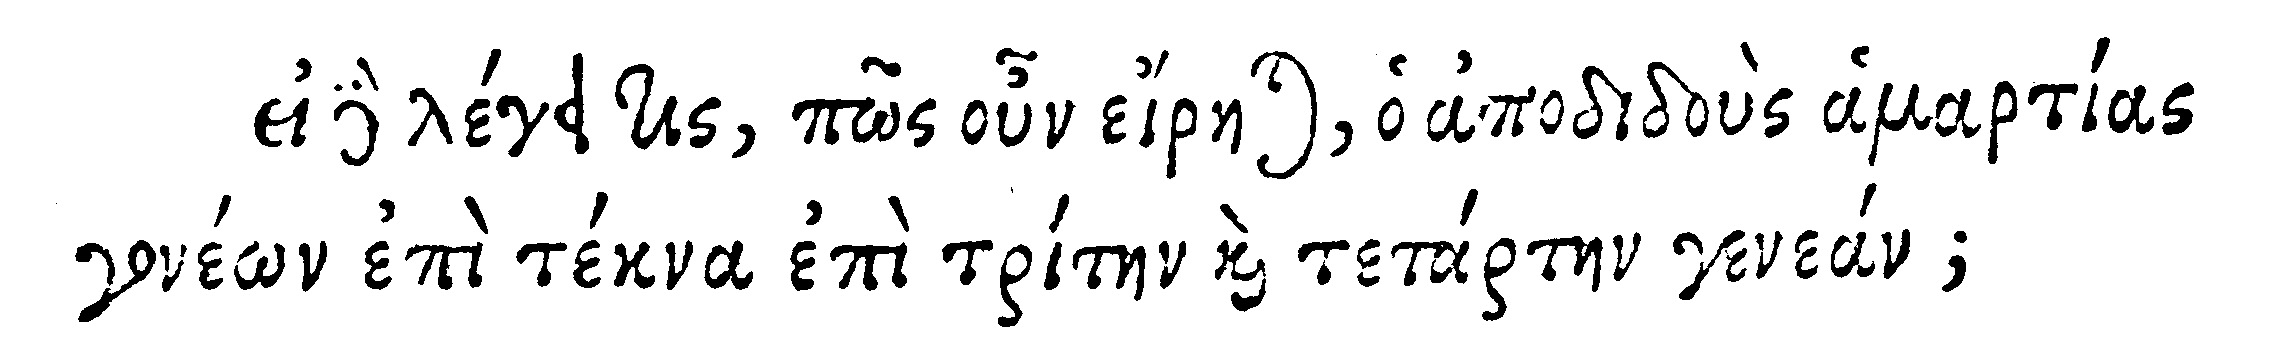 εἰ γὰρ λέγει τις, πῶς οὖν εἴρηται, ὁ ἀποδιδοὺς ἁμαρτίας
γονέων ἐπὶ τέκνα ἐπὶ τρίτην καὶ τετάρτην γενεάν;